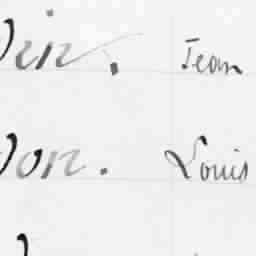 in. Jean
on. Louis